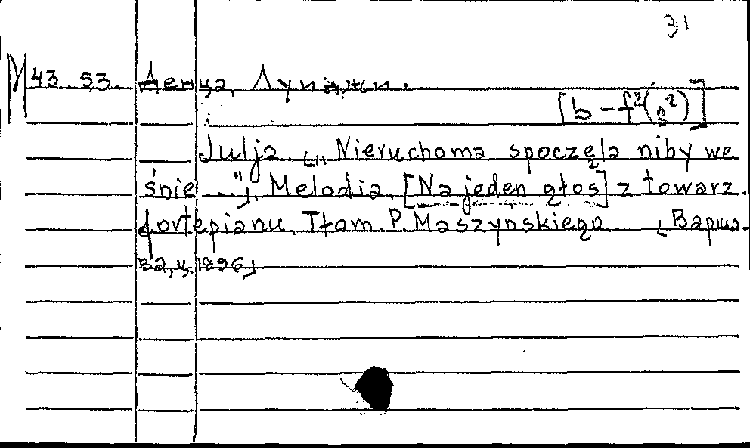 31
М 43 53. Денца, Луиджи.
[b – f²(g²)]
Julja „Nieruchoma spoczęła niby we
śnie ..." Melodia [Na jeden głos] z towarz.
fortepianu. Tłóm. P. Maszyńskiego
1896